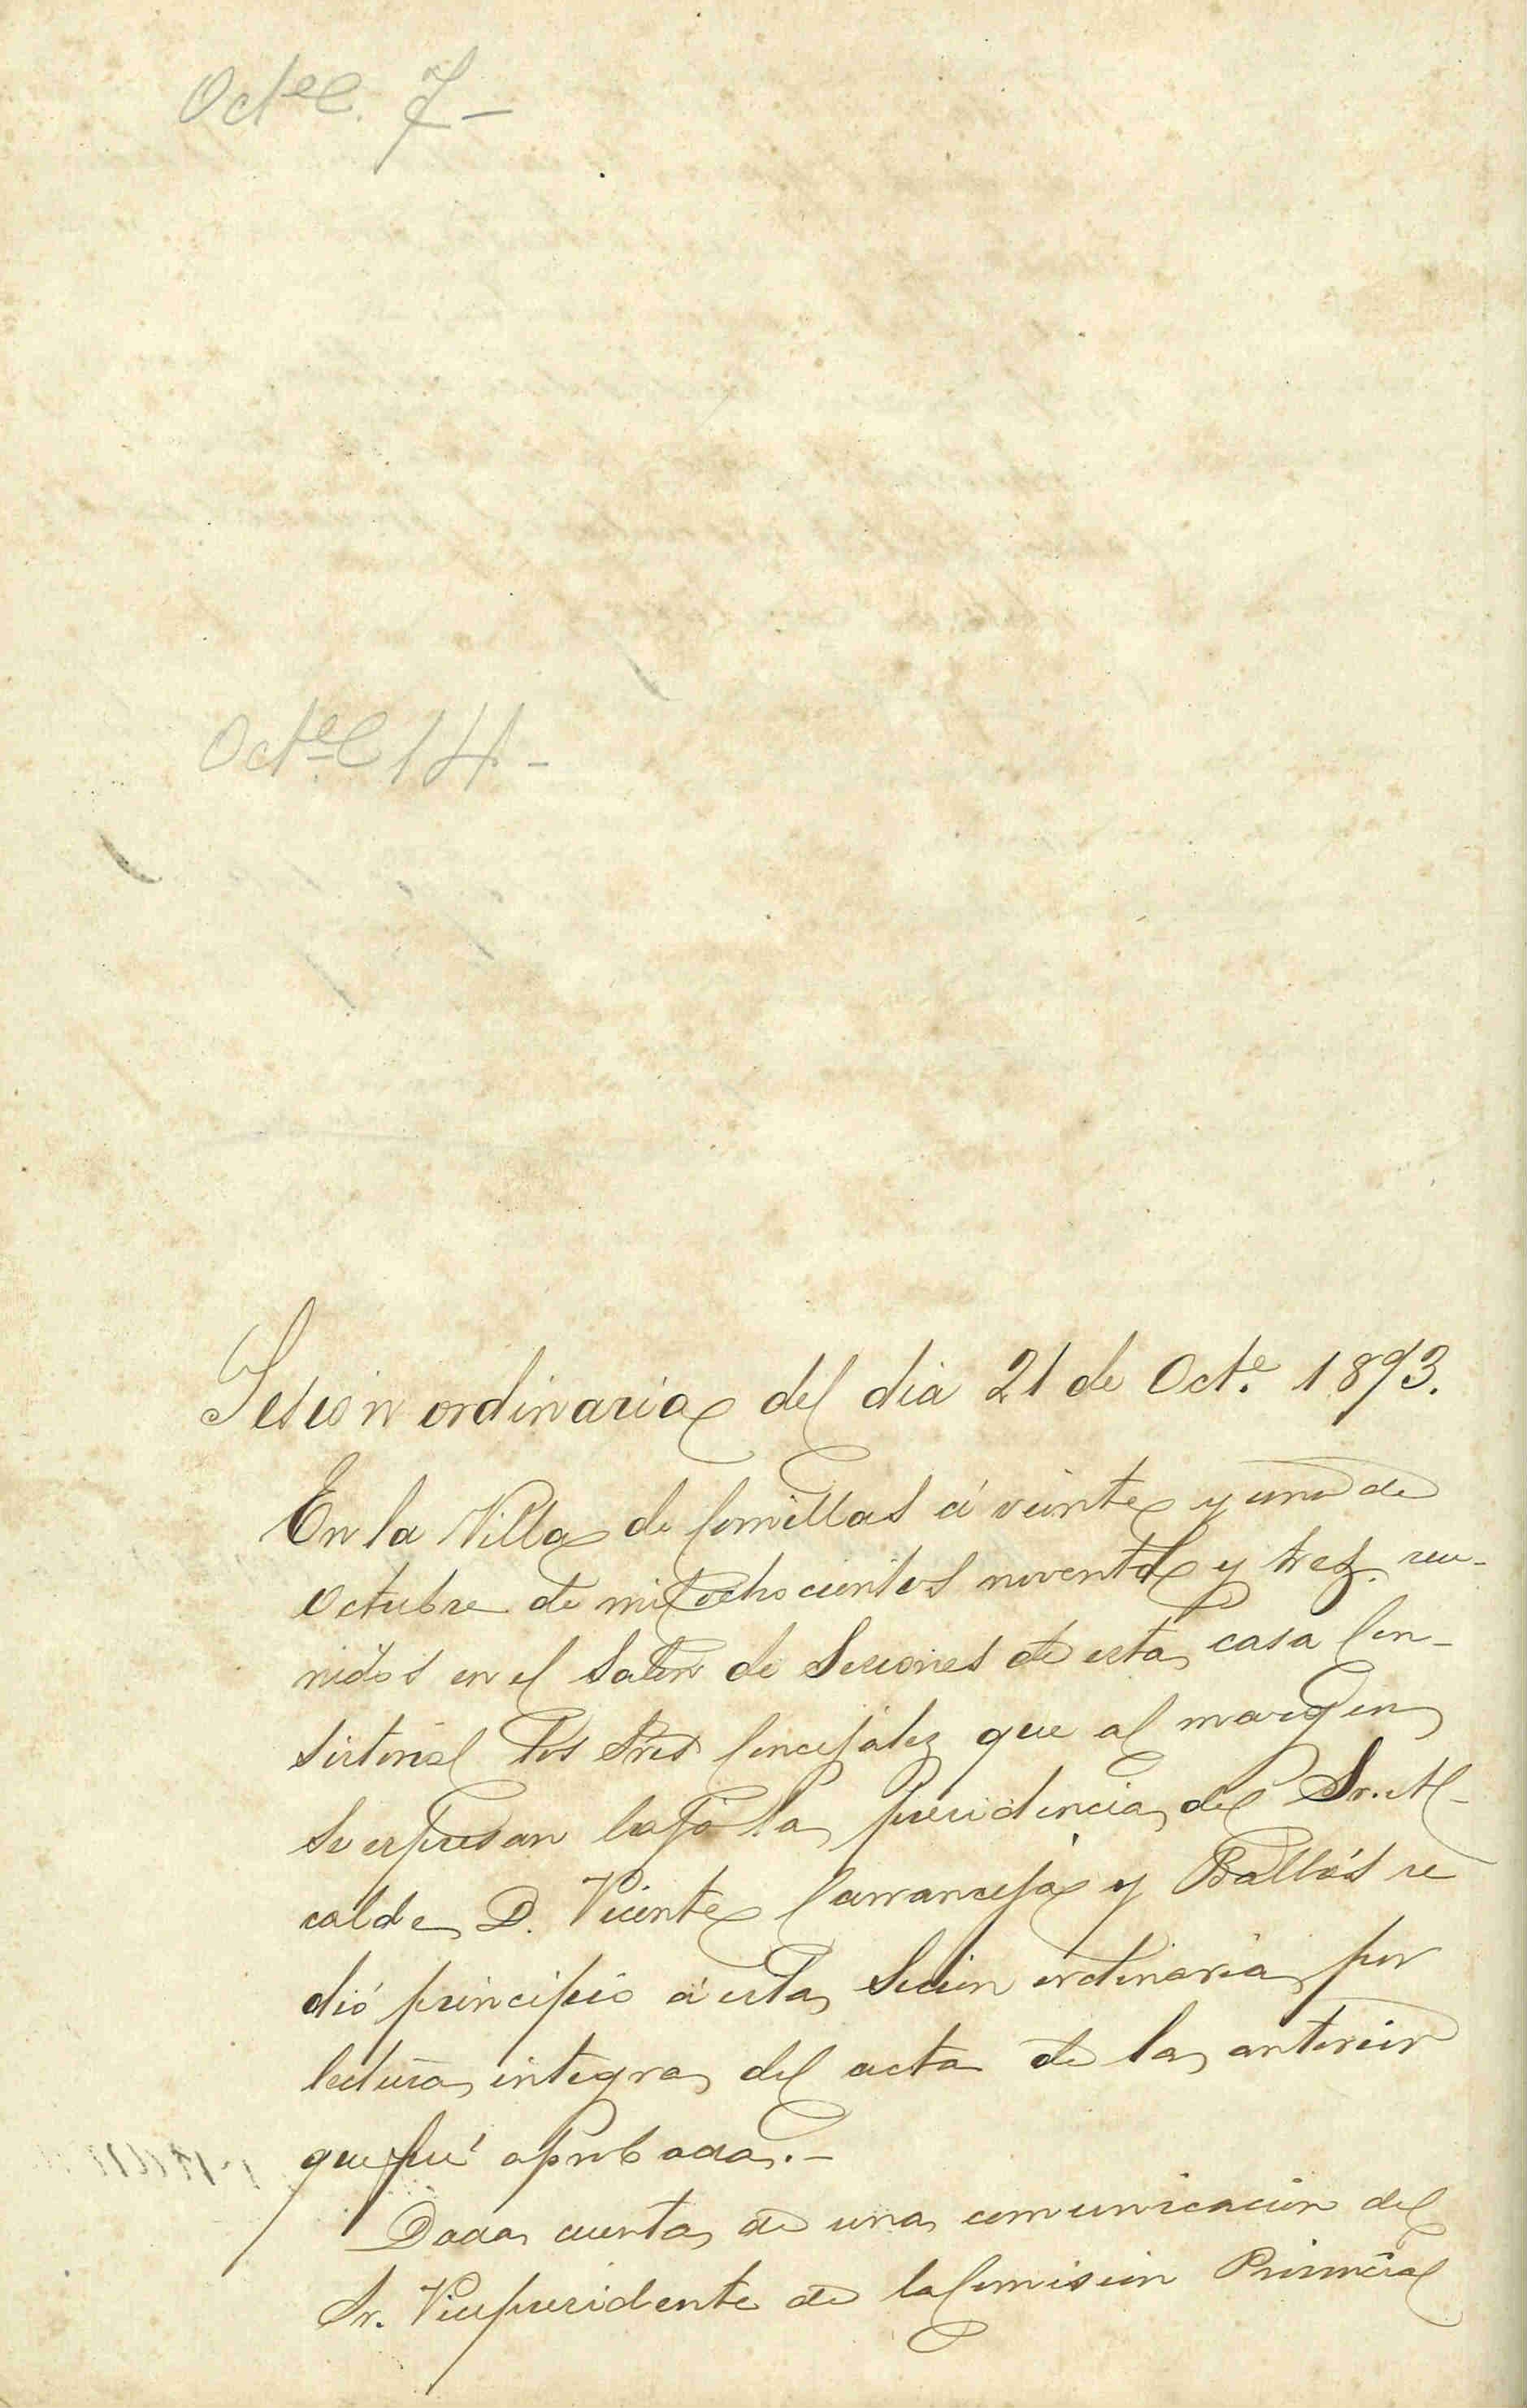 Octᵉ. 7-
Octᵉ 14-
Sesion ordinaria del dia 21 de Octᵉ. 1893.
En la Villa de Comillas á veinte y uno de
Octubre de mil ochocientos noventa y tres. reu-
nidos en el Salon de Sesiones de esta casa Con-
sistorial los Sres Concejales que al margen
se espresan bajo la presidencia del Sr. Al-
calde D. Vicente Carranceja y Ballás se
dió principio á esta Sesion ordinaria por
lectura integra del acta de la anterior
que fué aprobada.-
Dada cuenta de una comunicacion del
Sr. Vicepresidente de la Comision Provincial